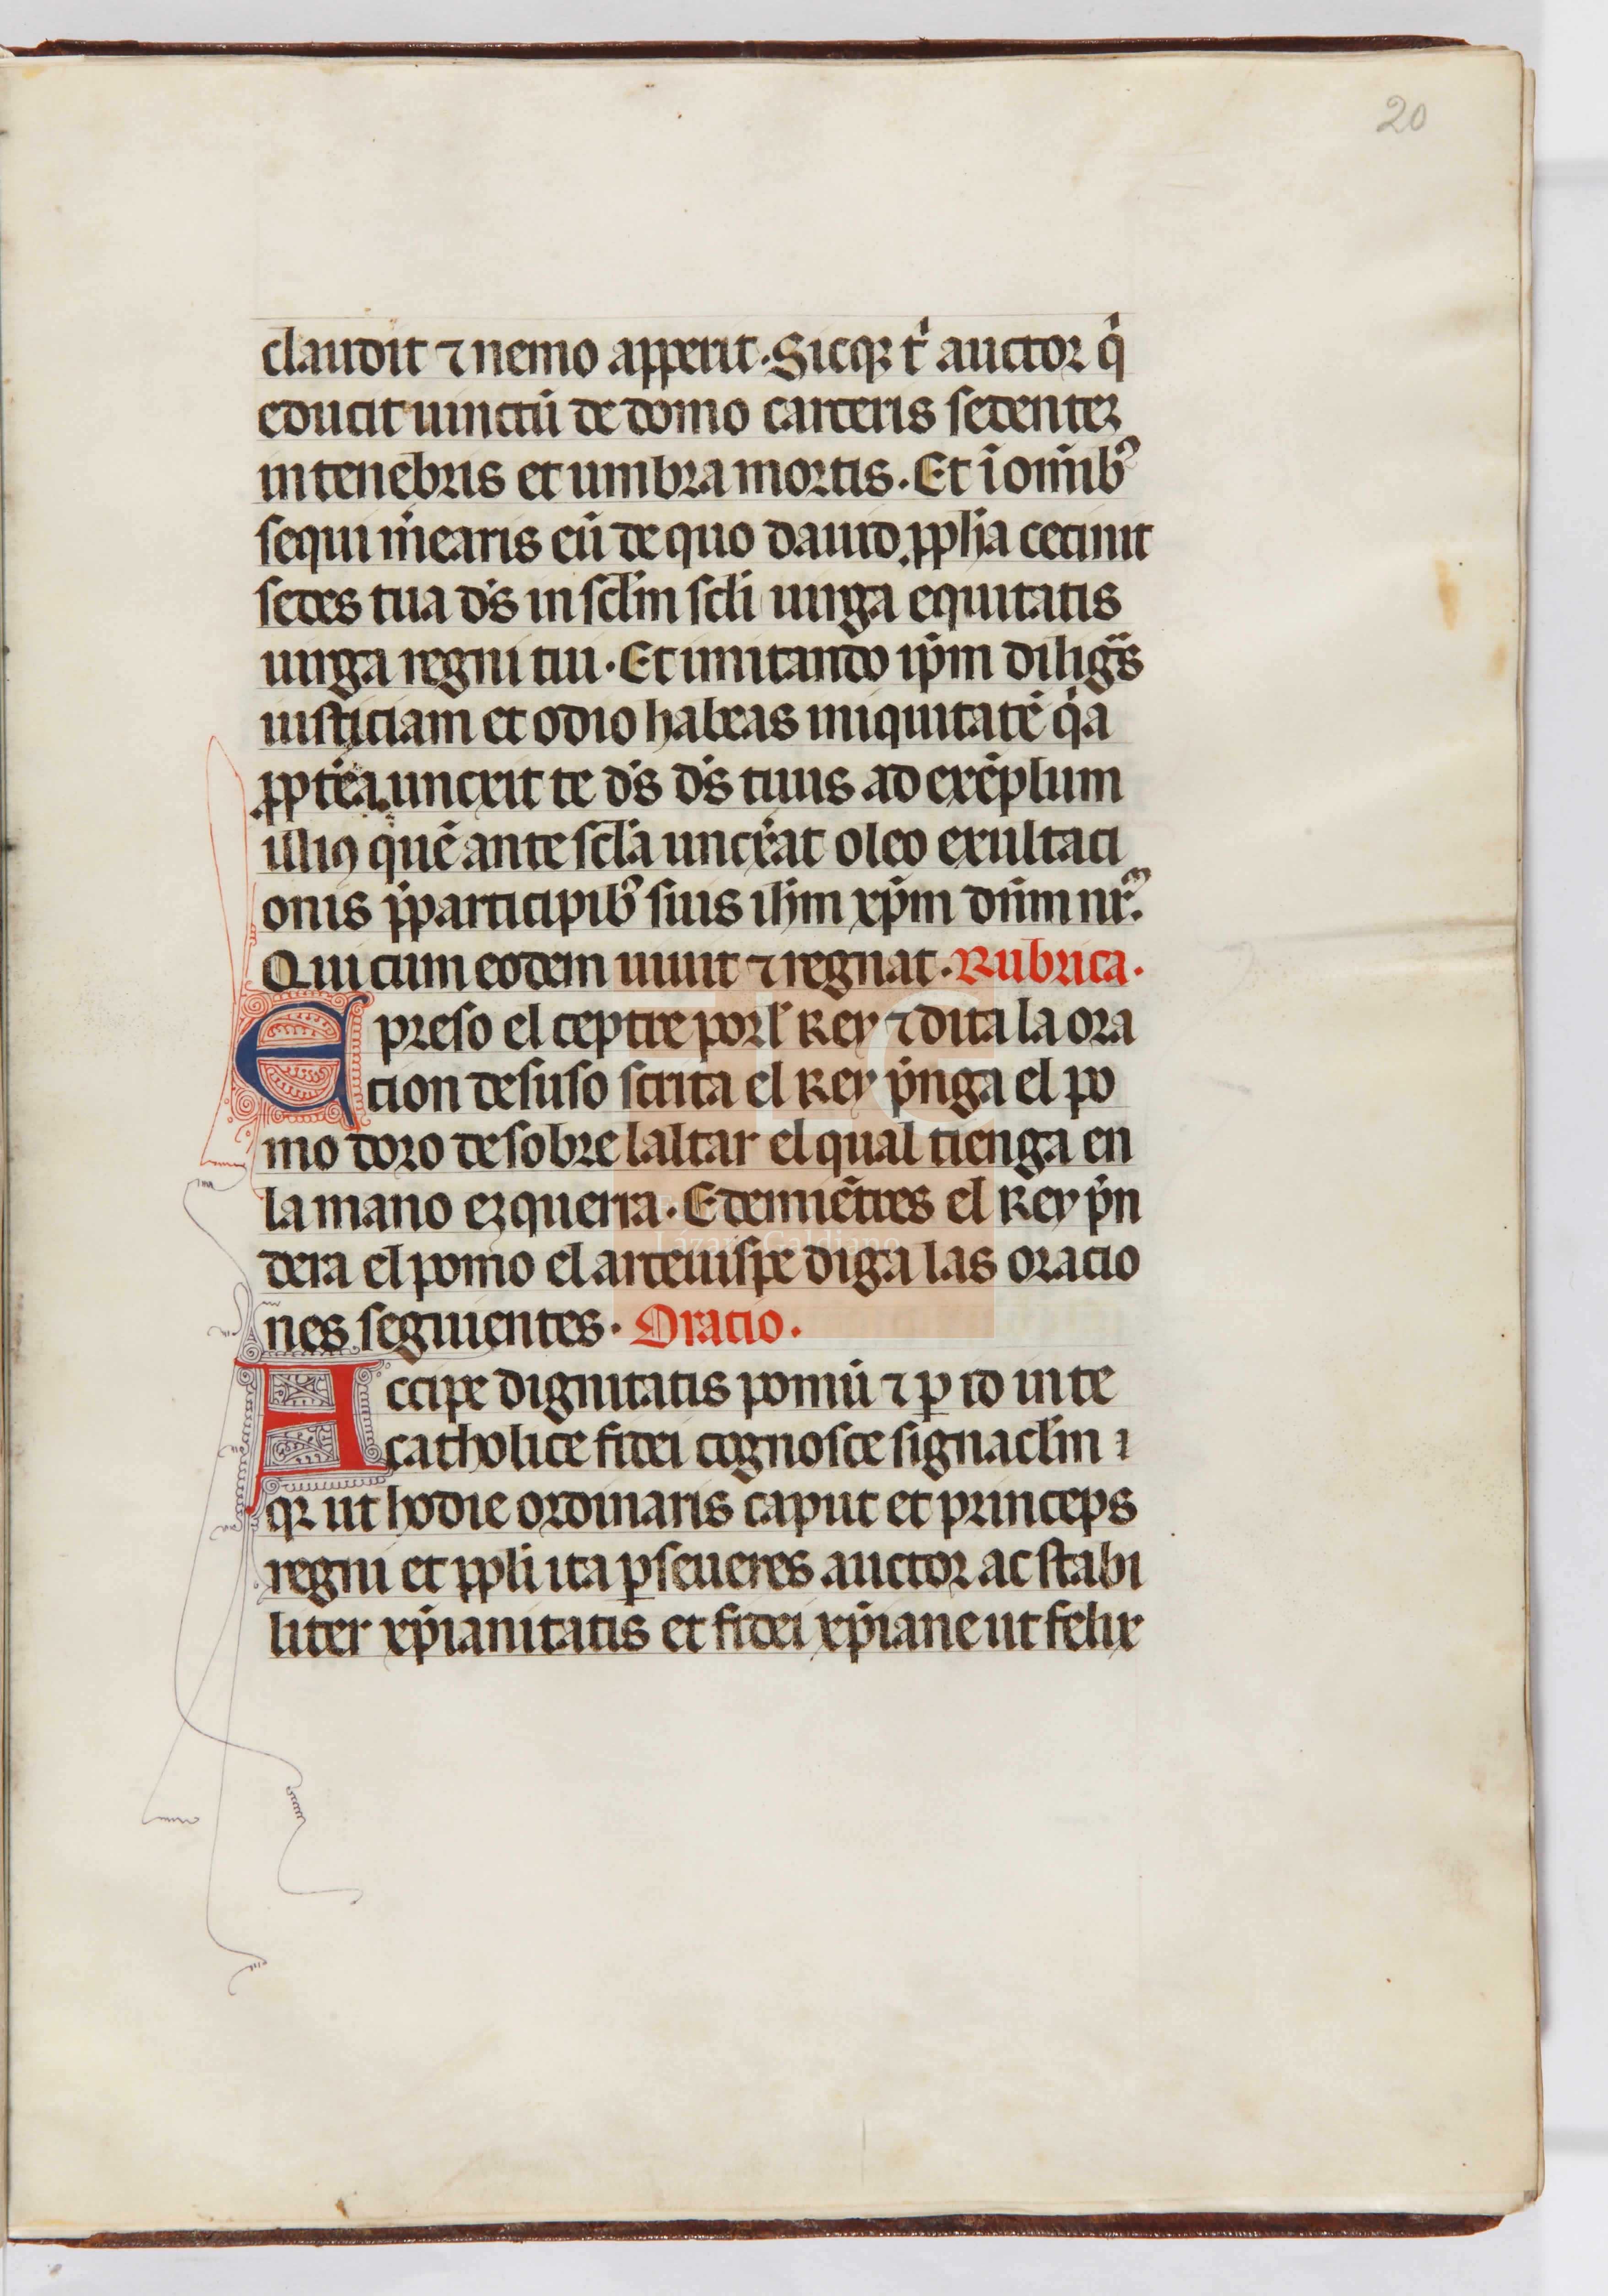 20
claudit ⁊ nemo apperit. Sicqꝫ tͥ auctor qͥ
educit uinctū de domo carceris sedenteꝫ
in tenebris et umbra mortis. Et ī om̄ibꝰ
sequi m̓earis eū de quo dauid ꝓph̄ia cecinit
sedes tua d̓s in sc̄lm sc̄li uirga equitatis
uirga regni tui. Et imitando ip̄m diligas
iusticiam et odio habeas iniquitatē qͥa
ꝓpt̓ea uncxit te d̓s d̓s tuus ad exēplum
illiꝯ quē ante sc̄la uncx̓at oleo exultaci
onis p̄participibꝰ suis ih̄m xp̄m dn̄m nr̄m.
Qui cum eodem uiuit ⁊ regnat. Rubrica.
E preso el ceptre porl Rey ⁊ dita la ora
cion desuso scrita el Rey p̓nga el po
mo doro de sobre laltar el qual tienga en
la mano ezquerra. E demiētres el Rey p̓n
dera el pomo el arceuispe diga las oracio
nes seguientes. Oracio.
Accipe dignitatis pomū ⁊ ꝑ id in te
catholice fidei cognosce signaclm̄ ı
qꝫ ut hodie ordinaris caput et princeps
regni et ppli ita ꝑseueres auctor ac stabi
liter xp̄ianitatis et fidei xp̄iane ut felix
Lázaro Galdiano